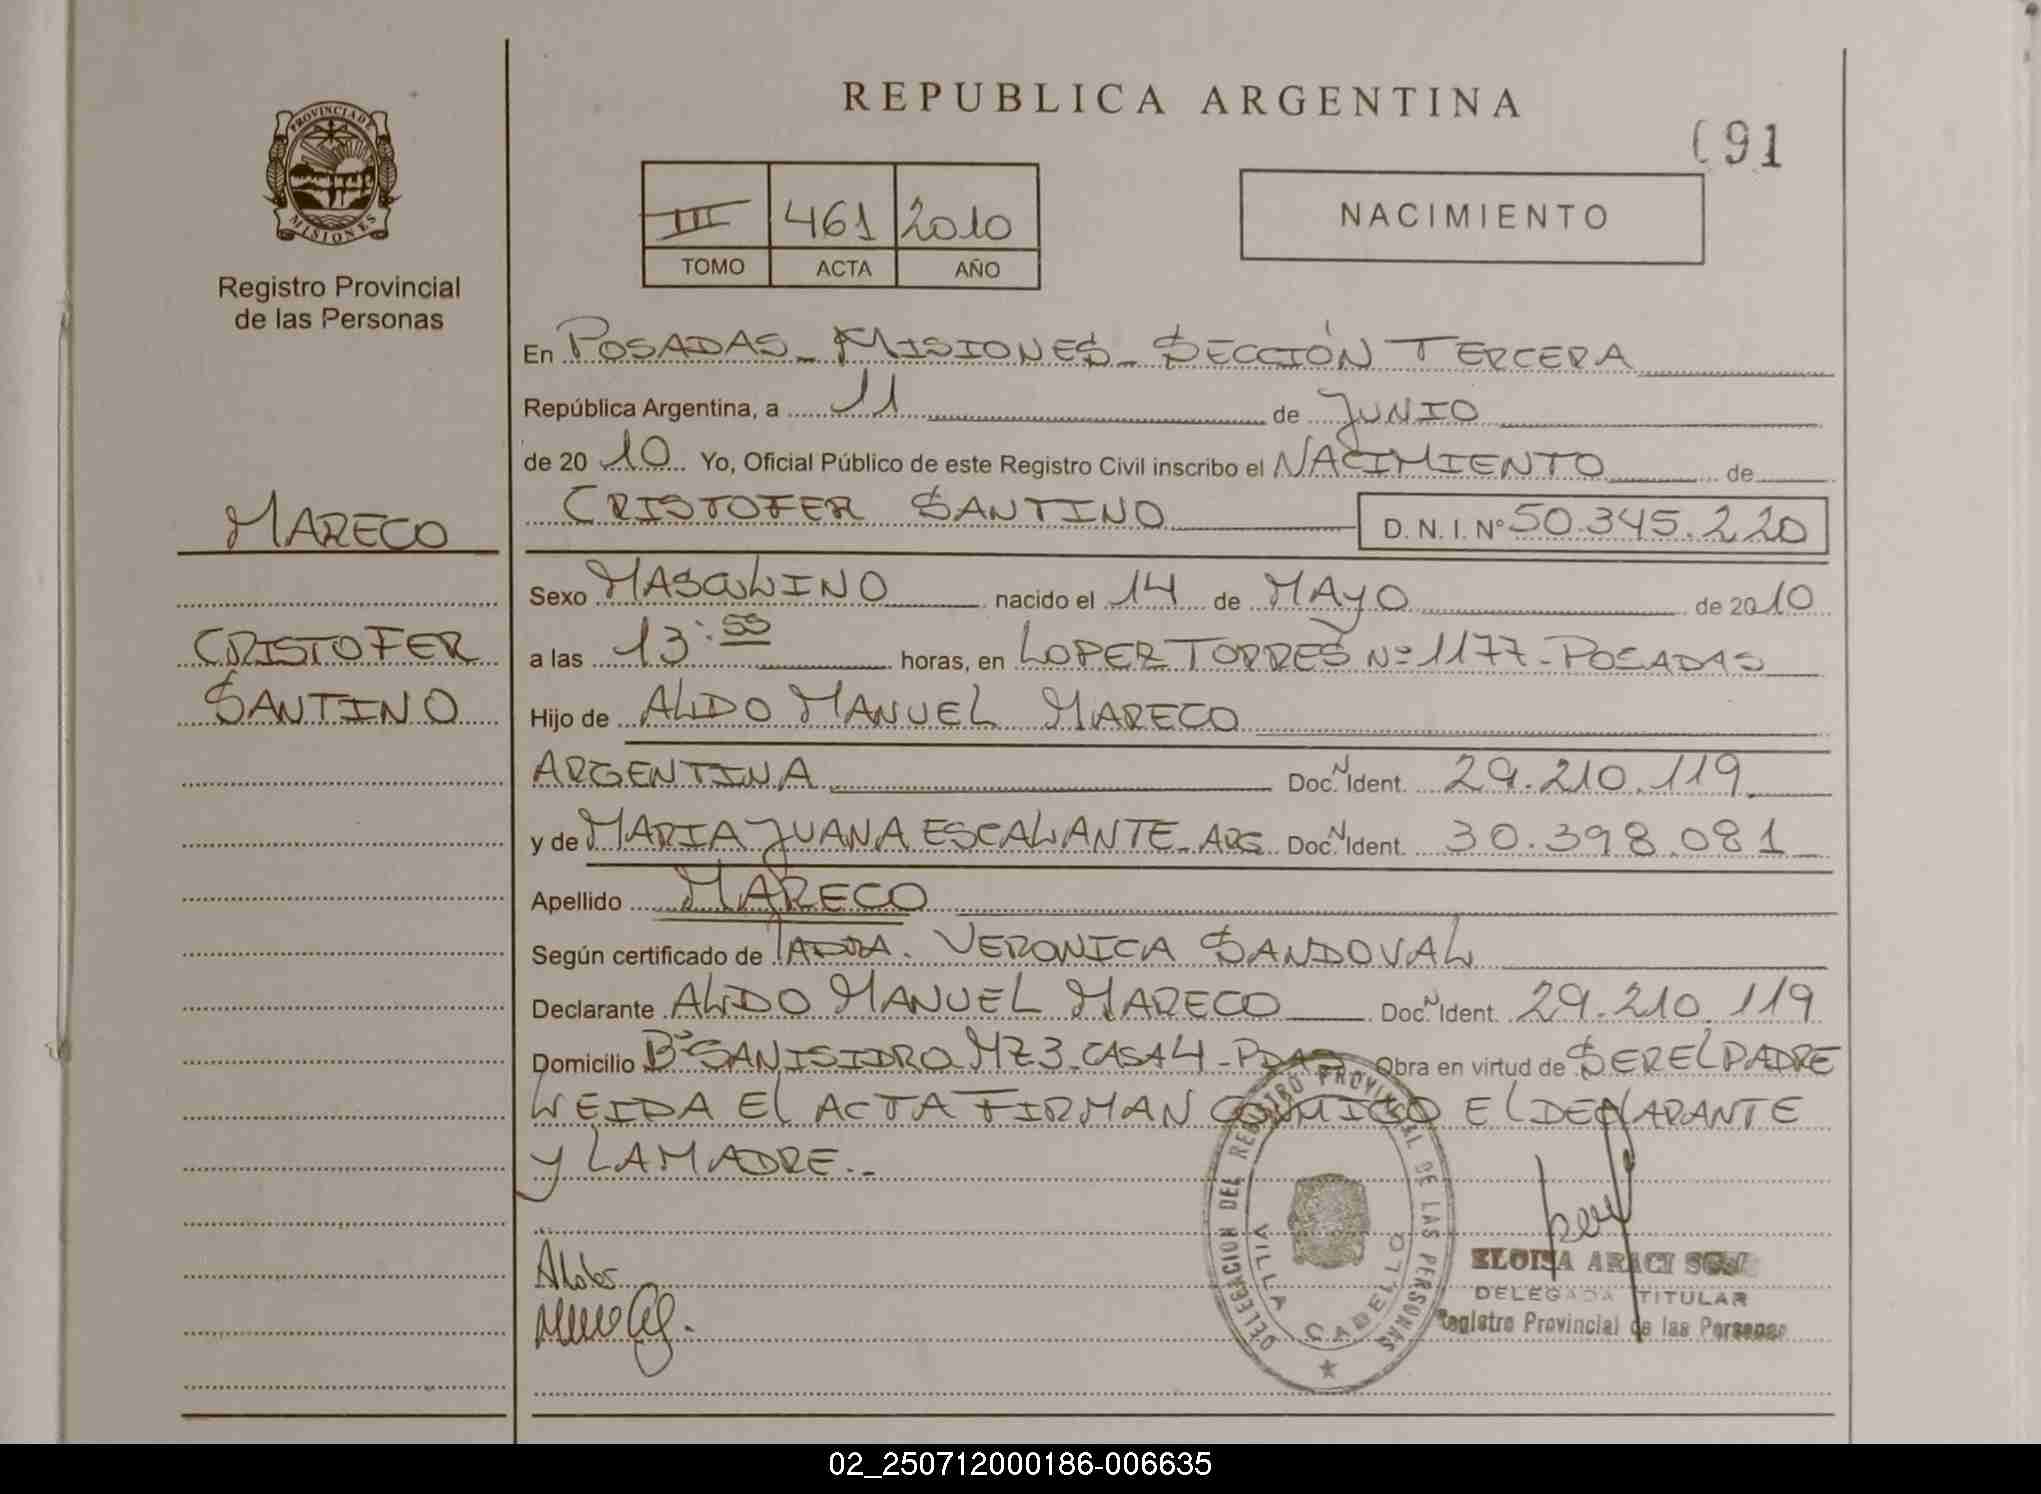 REPUBLICA ARGENTINA
091
PROVINCIA DE
MISIONES
Registro Provincial
de las Personas
III 461 2010
TOMO ACTA AÑO
NACIMIENTO
En POSADAS - MISIONES - SECCIÓN TERCERA
República Argentina, a 11 de JUNIO
de 20 10 Yo, Oficial Público de este Registro Civil inscribo el NACIMIENTO de
CRISTOFER SANTINO D. N. I. Nº 50.345.220
MARECO
CRISTOFER
SANTINO
Sexo MASCULINO nacido el 14 de MAYO de 2010
a las 13:55 horas, en LOPER TORRES Nº 1177 - POSADAS
Hijo de ALDO MANUEL MARECO
ARGENTINA Doc. N Ident. 29.210.119
y de MARIA JUANA ESCALANTE - ARG Doc. N Ident. 30.398.081
Apellido MARECO
Según certificado de VERONICA SANDOVAL
Declarante ALDO MANUEL MARECO Doc. N Ident. 29.210.119
Domicilio Bº SAN ISIDRO MZ 3 - CASA 4 - PDAS Obra en virtud de SER EL PADRE
LEIDA EL ACTA FIRMAN CONMIGO EL DECLARANTE
Y LA MADRE.-
DELEGACION DEL REGISTRO PROVINCIAL DE LAS PERSONAS
VILLA CABELLO
ELOISA ARACI
DELEGADA TITULAR
Registro Provincial de las Personas
02_250712000186-006635